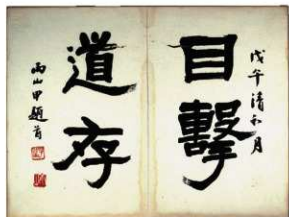 戊午清和月
目擊
道存
兩山甲題耑